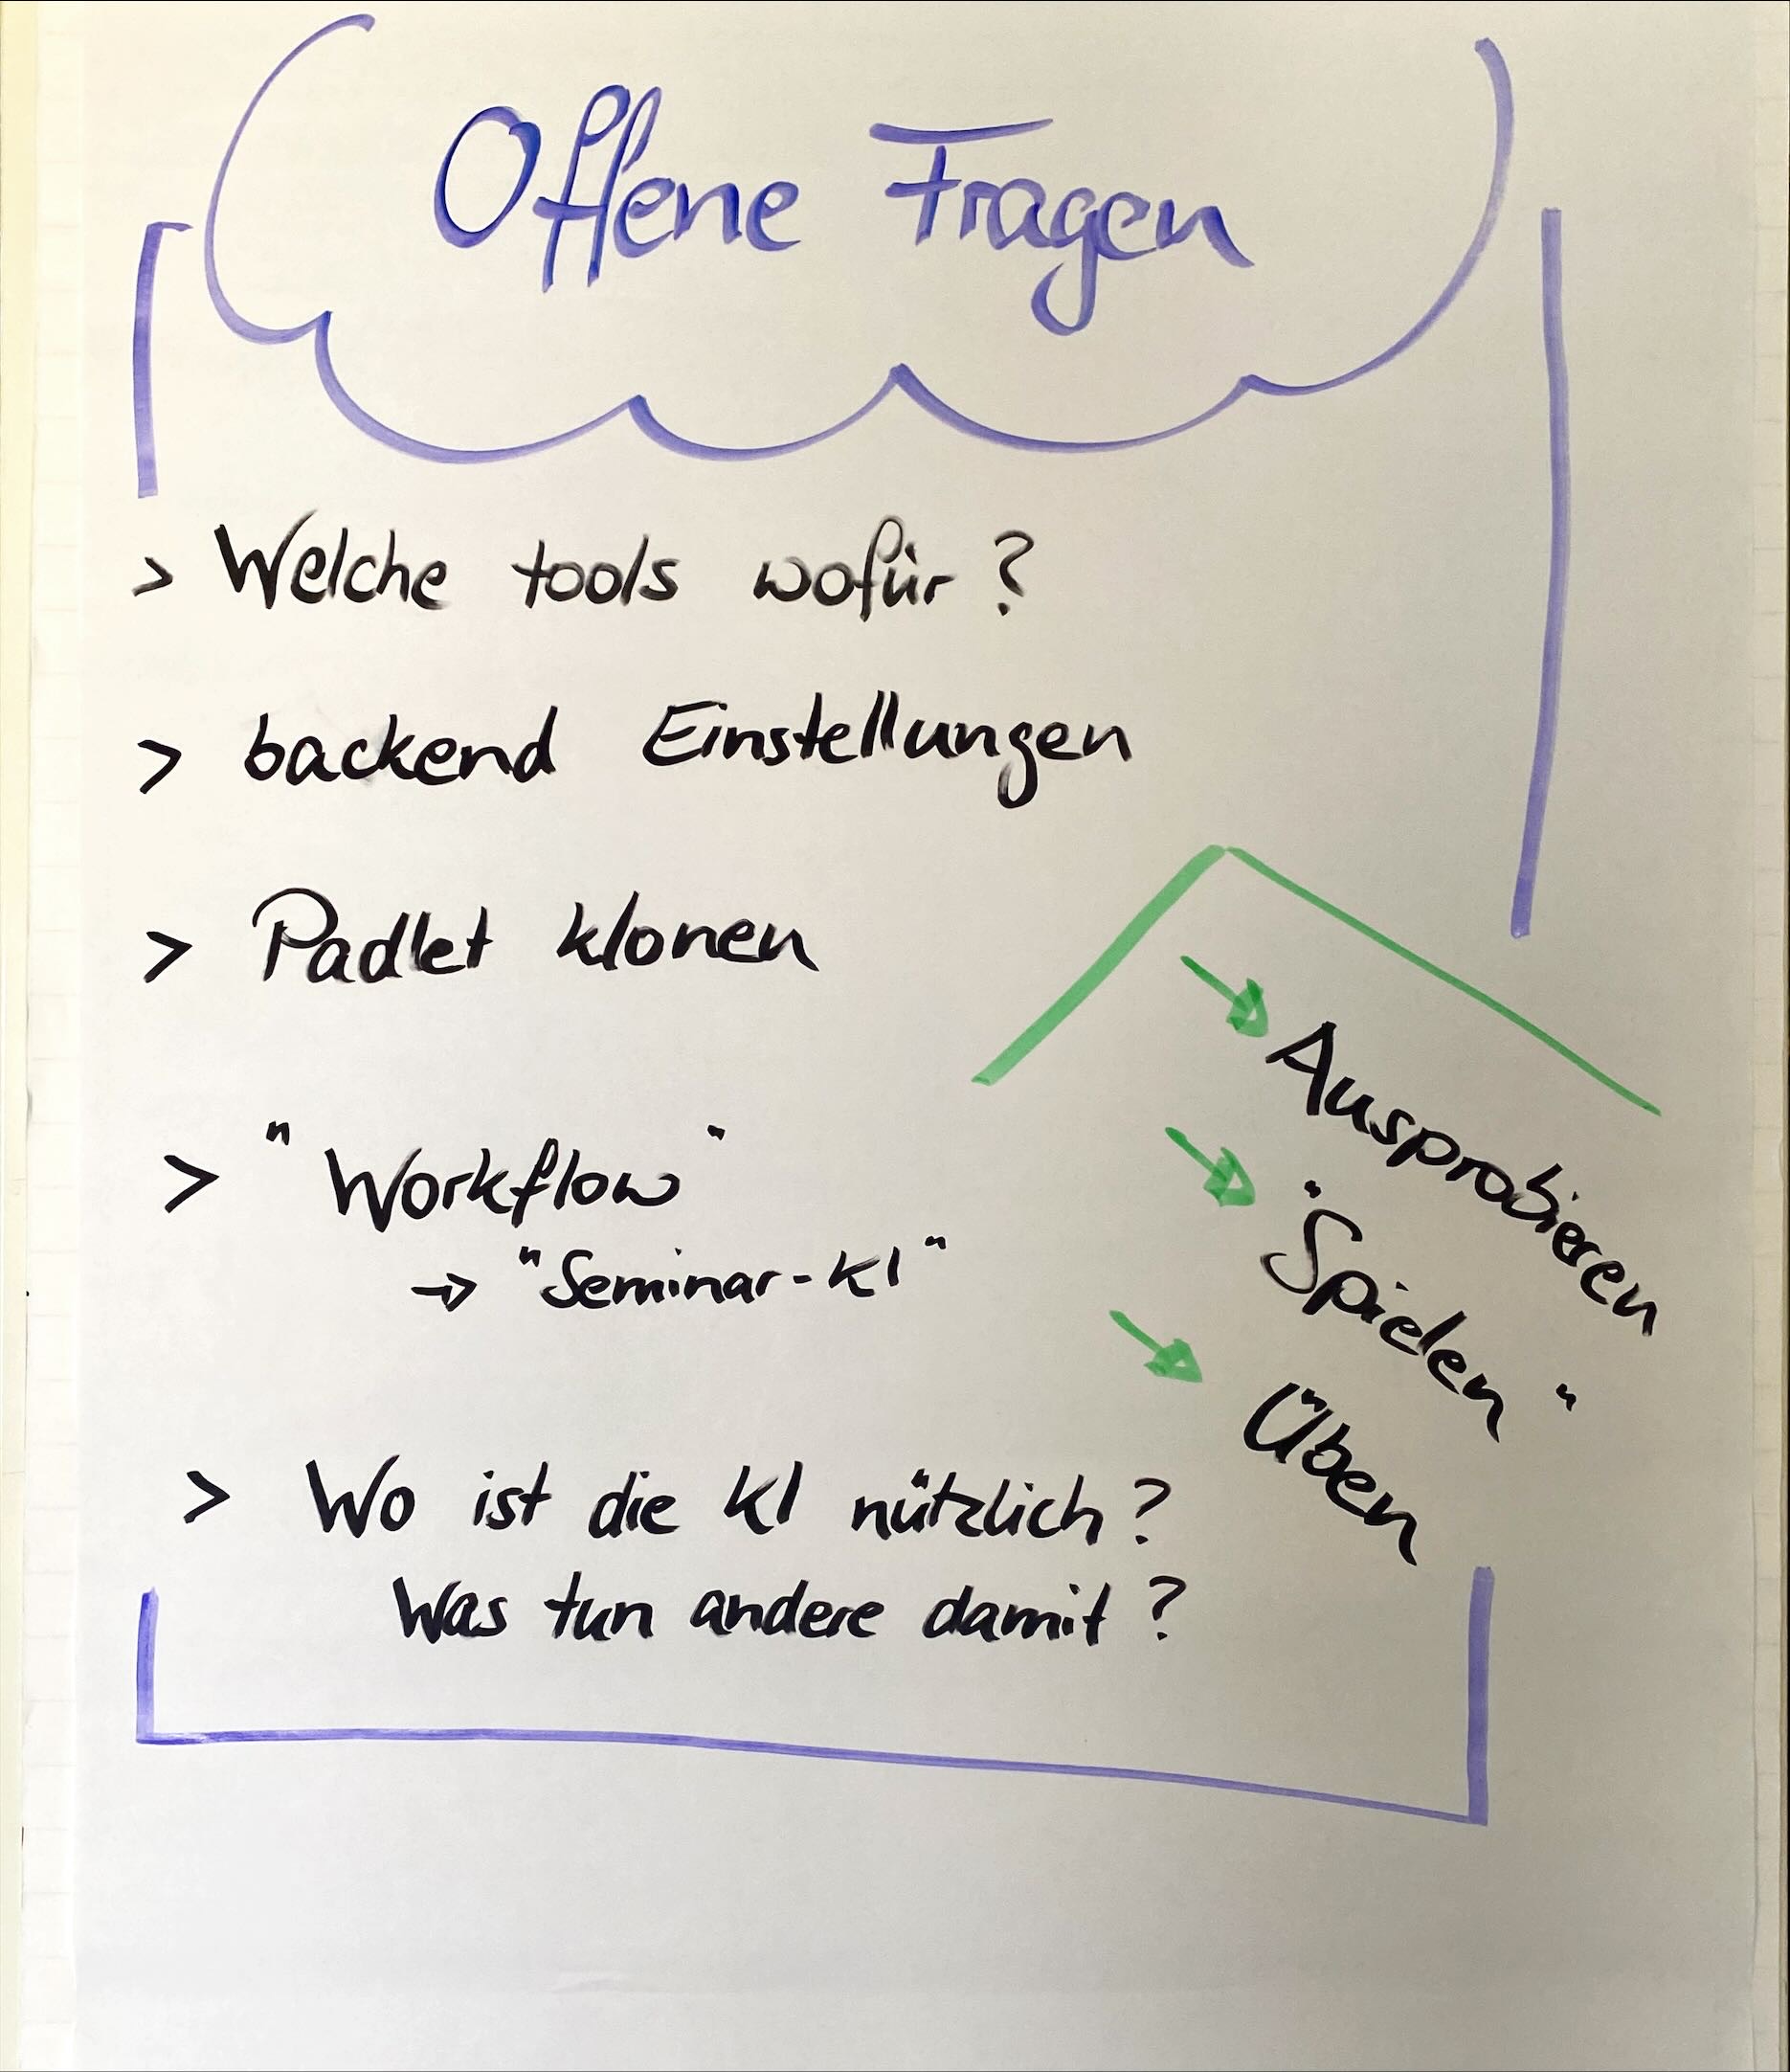 Offene Fragen
> Welche tools wofür?
> backend Einstellungen
> Padlet klonen
> "Workflow"
→ "Seminar-KI"
> Wo ist die KI nützlich?
Was tun andere damit?
→ Ausprobieren
→ "Spielen"
→ Üben